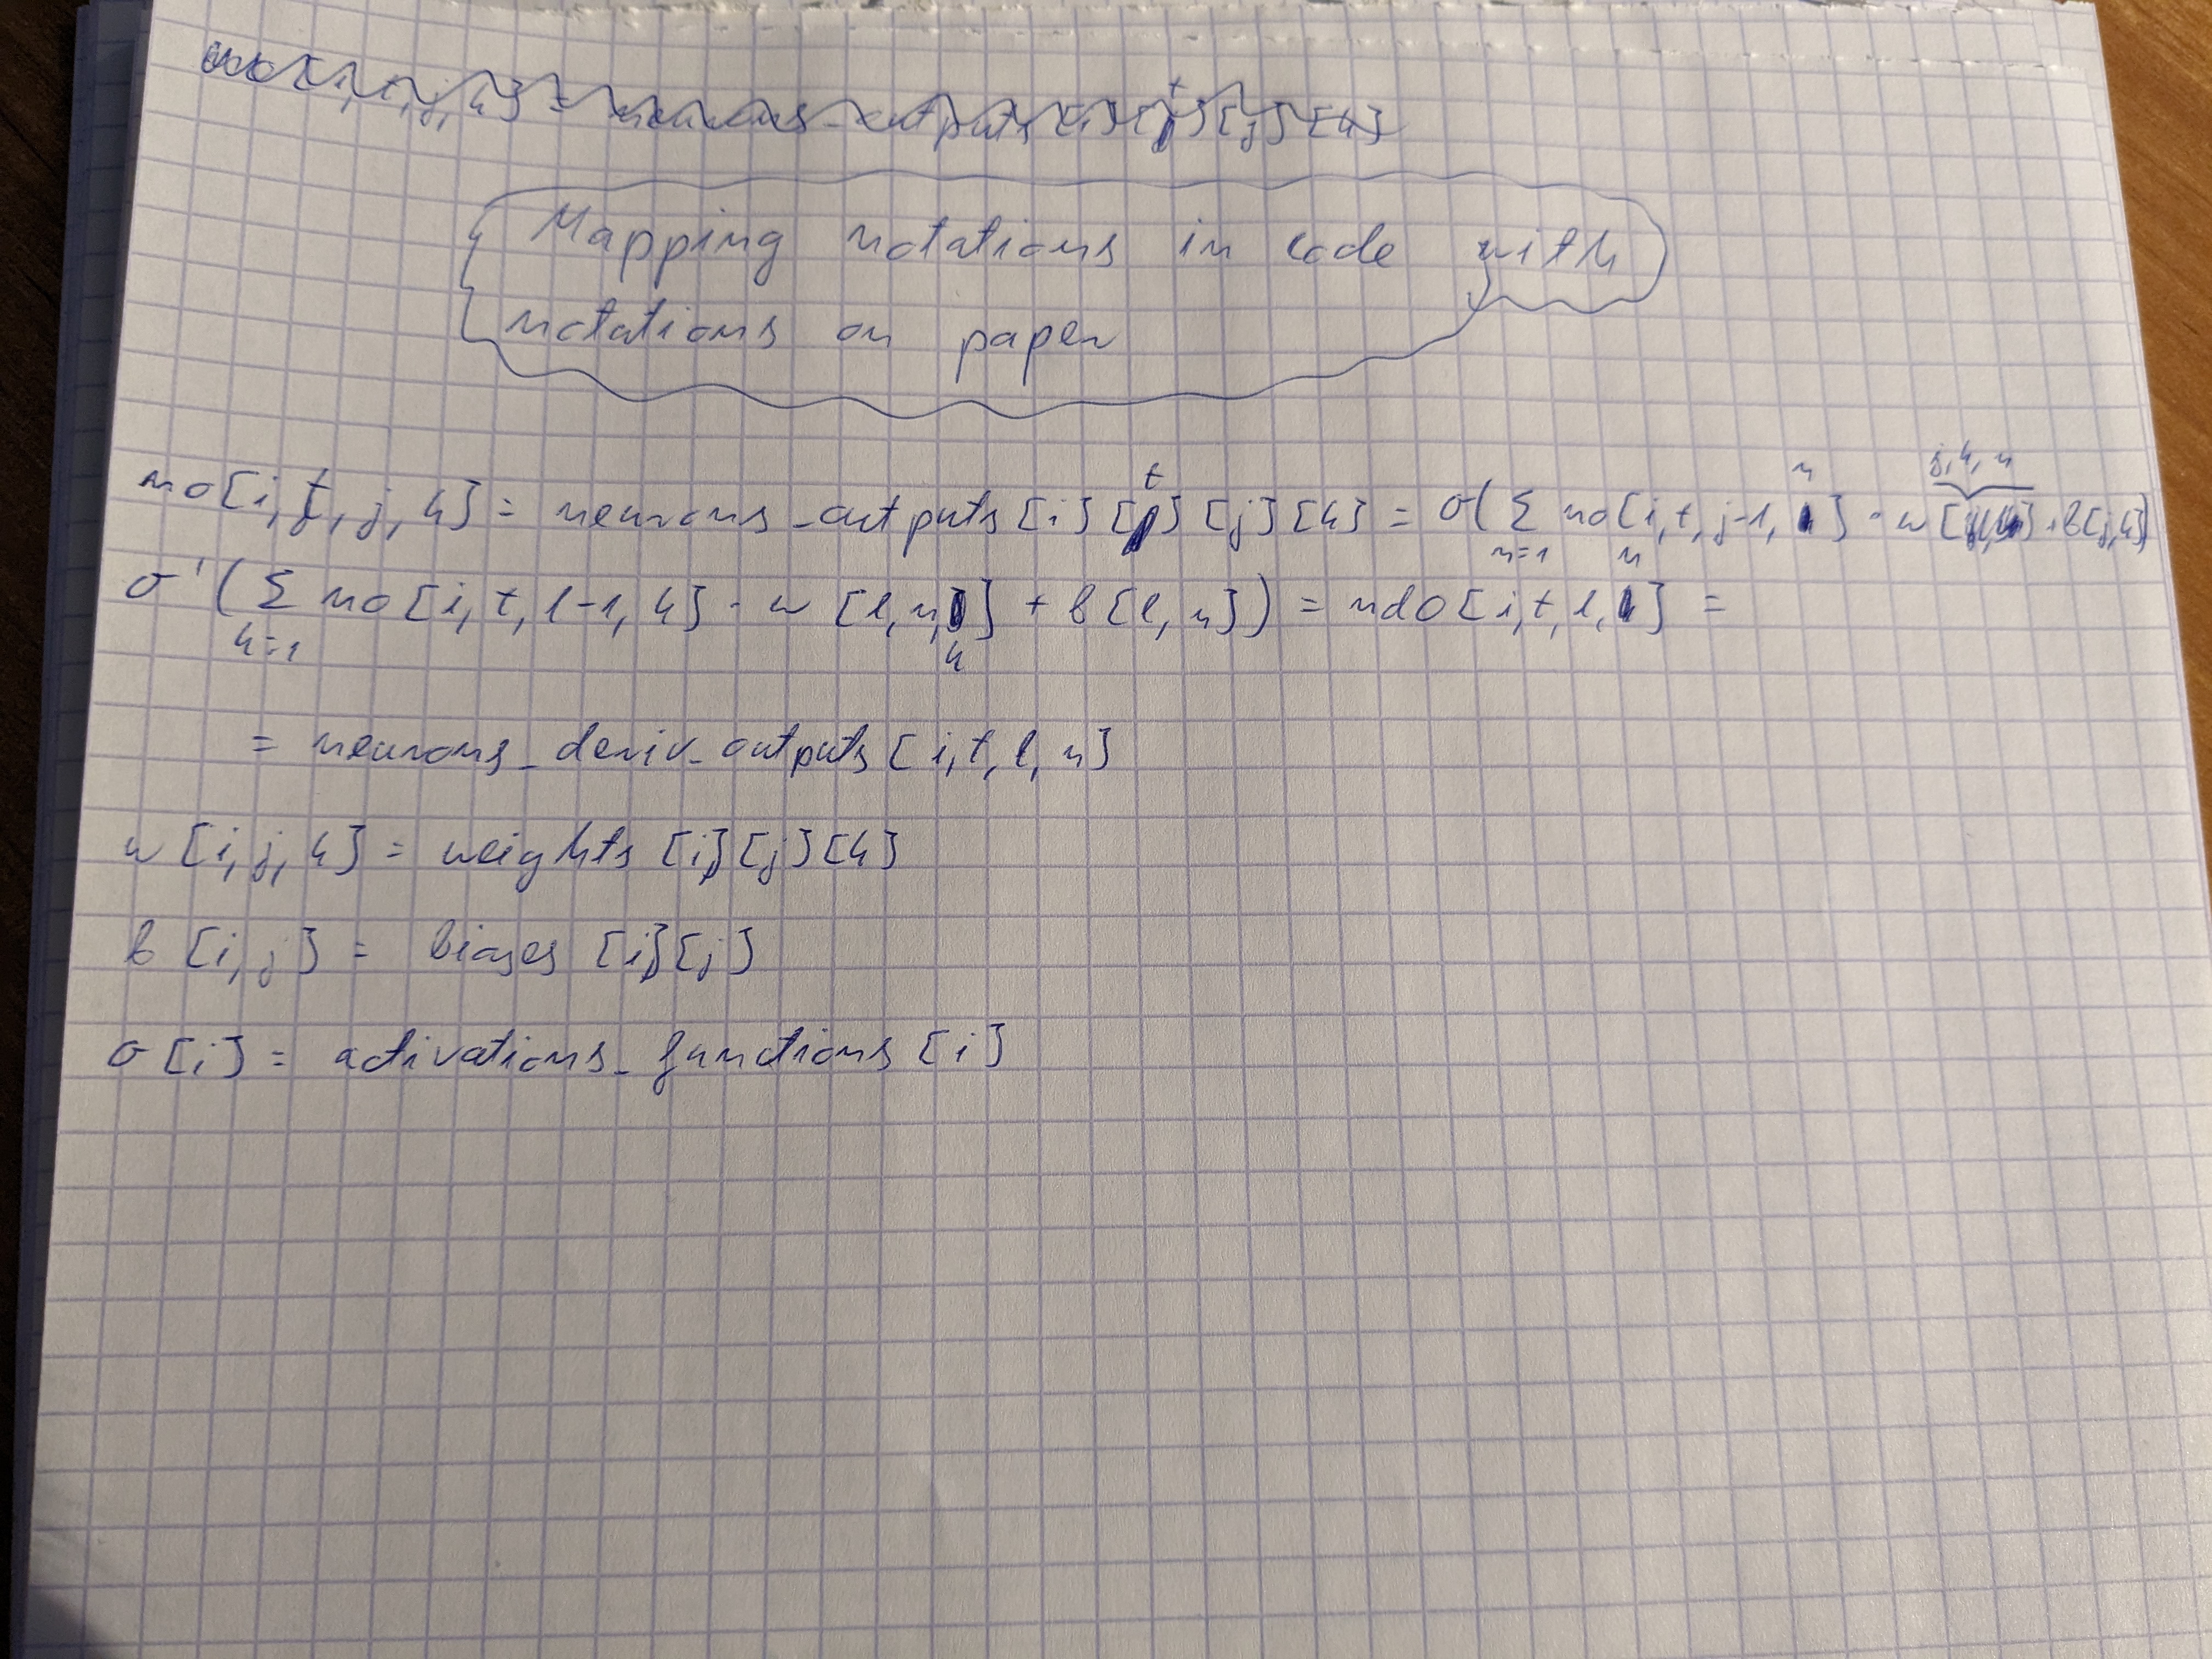 no[i,t,j,k] = neurons_outputs[i][t][j][k]
Mapping notations in code with
notations on paper
no[i,t,j,k] = neurons_outputs[i][t][j][k] = σ(∑ n=1 no[i,t,j-1,n] · w[j,k,n] + b[j,k])
σ'(∑ k=1 no[i,t,l-1,k] · w[l,n,k] + b[l,n]) = ndo[i,t,l,n] =
= neurons_deriv_outputs[i,t,l,n]
w[i,j,k] = weights[i][j][k]
b[i,j] = biases[i][j]
σ[i] = activations_functions[i]